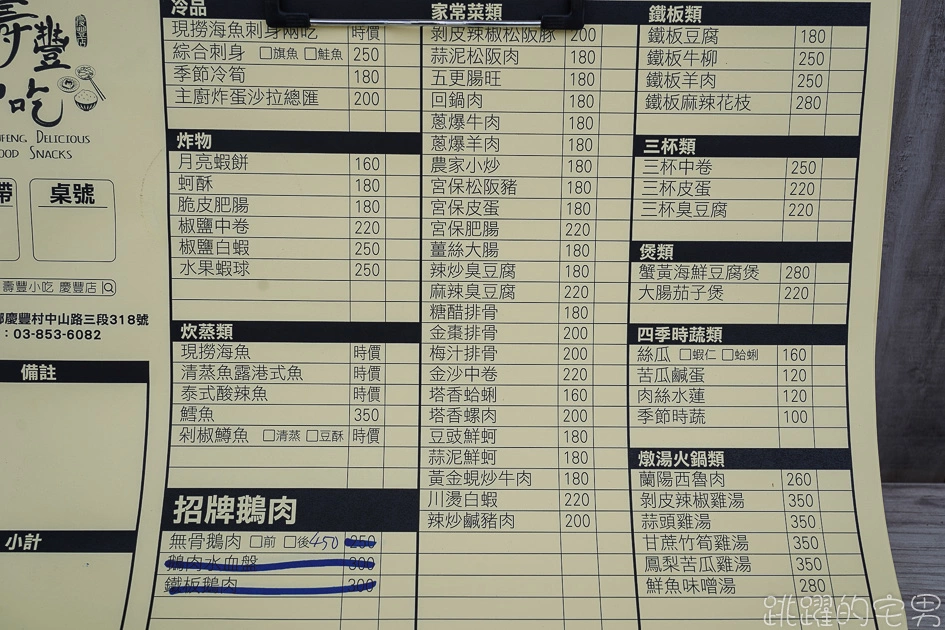 壽豐
小吃
FENG DELICIOUS
FOOD SNACKS
桌號
壽豐小吃 慶豐店
慶豐村中山路三段318號
：03-853-6082
備註
小計
冷品
現撈海魚刺身兩吃 時價
綜合刺身 □旗魚 □鮭魚 250
季節冷筍 180
主廚炸蛋沙拉總匯 200
炸物
月亮蝦餅 160
蚵酥 180
脆皮肥腸 180
椒鹽中卷 220
椒鹽白蝦 250
水果蝦球 250
炊蒸類
現撈海魚 時價
清蒸魚露港式魚 時價
泰式酸辣魚 時價
鱈魚 350
剁椒鱒魚 □清蒸 □豆酥 時價
招牌鵝肉
無骨鵝肉 □前 □後 450 250
鵝肉水血盤 300
鐵板鵝肉 300
家常菜類
剝皮辣椒松阪豚 200
蒜泥松阪肉 180
五更腸旺 180
回鍋肉 180
蔥爆牛肉 180
蔥爆羊肉 180
農家小炒 180
宮保松阪豬 180
宮保皮蛋 180
宮保肥腸 220
薑絲大腸 180
辣炒臭豆腐 180
麻辣臭豆腐 220
糖醋排骨 180
金棗排骨 200
梅汁排骨 200
金沙中卷 220
塔香蛤蜊 160
塔香螺肉 200
豆豉鮮蚵 180
蒜泥鮮蚵 180
黃金蜆炒牛肉 180
川燙白蝦 220
辣炒鹹豬肉 200
鐵板類
鐵板豆腐 180
鐵板牛柳 250
鐵板羊肉 250
鐵板麻辣花枝 280
三杯類
三杯中卷 250
三杯皮蛋 220
三杯臭豆腐 220
煲類
蟹黃海鮮豆腐煲 280
大腸茄子煲 220
四季時蔬類
絲瓜 □蝦仁 □蛤蜊 160
苦瓜鹹蛋 120
肉絲水蓮 120
季節時蔬 100
燉湯火鍋類
蘭陽西魯肉 260
剝皮辣椒雞湯 350
蒜頭雞湯 350
甘蔗竹筍雞湯 350
鳳梨苦瓜雞湯 350
鮮魚味噌湯 280
跳躍的宅男